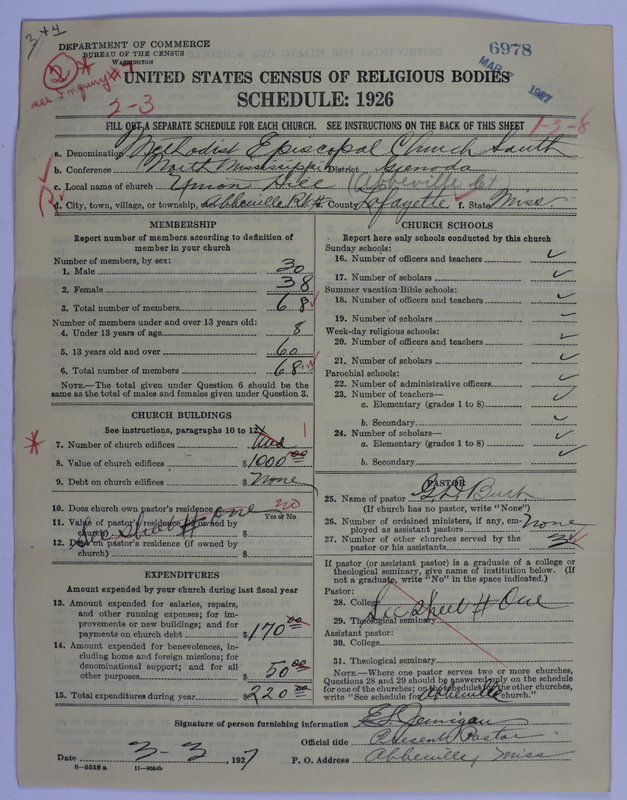 3+4
DEPARTMENT OF COMMERCE
BUREAU OF THE CENSUS
WASHINGTON
6978
MAR 1927
2 *
see Inquiry #7
UNITED STATES CENSUS OF RELIGIOUS BODIES
SCHEDULE: 1926
2-3
1-3-8
FILL OUT A SEPARATE SCHEDULE FOR EACH CHURCH. SEE INSTRUCTIONS ON THE BACK OF THIS SHEET
a. Denomination Methodist Episcopal Church South
b. Conference North Mississippi District Grenada
c. Local name of church Union Hill (Abbeville Ct)
d. City, town, village, or township, Abbeville Rt # County Lafayette f. State Miss
MEMBERSHIP
Report number of members according to definition of member in your church
Number of members, by sex:
1. Male 30
2. Female 38
3. Total number of members 68
Number of members under and over 13 years old:
4. Under 13 years of age 8
5. 13 years old and over 60
6. Total number of members 68
NOTE.—The total given under Question 6 should be the same as the total of males and females given under Question 3.
CHURCH BUILDINGS
See instructions, paragraphs 10 to 12
* 7. Number of church edifices 1
8. Value of church edifices $1000 00
9. Debt on church edifices $ None
10. Does church own pastor's residence no
Yes or No
11. Value of pastor's residence (if owned by church) $
See Sheet # one
12. Debt on pastor's residence (if owned by church) $
EXPENDITURES
Amount expended by your church during last fiscal year
13. Amount expended for salaries, repairs, and other running expenses; for improvements or new buildings; and for payments on church debt $170 00
14. Amount expended for benevolences, including home and foreign missions; for denominational support; and for all other purposes $ 50 00
15. Total expenditures during year $ 220 00
CHURCH SCHOOLS
Report here only schools conducted by this church
Sunday schools:
16. Number of officers and teachers ✓
17. Number of scholars ✓
Summer vacation Bible schools:
18. Number of officers and teachers ✓
19. Number of scholars ✓
Week-day religious schools:
20. Number of officers and teachers ✓
21. Number of scholars ✓
Parochial schools:
22. Number of administrative officers ✓
23. Number of teachers—
a. Elementary (grades 1 to 8) ✓
b. Secondary ✓
24. Number of scholars—
a. Elementary (grades 1 to 8) ✓
b. Secondary ✓
PASTOR
25. Name of pastor Burt
(If church has no pastor, write "None")
26. Number of ordained ministers, if any, employed as assistant pastors none
27. Number of other churches served by the pastor or his assistants 3
If pastor (or assistant pastor) is a graduate of a college or theological seminary, give name of institution below. (If not a graduate, write "No" in the space indicated.)
Pastor:
28. College
See Sheet # One
29. Theological seminary
Assistant pastor:
30. College
31. Theological seminary
NOTE.—Where one pastor serves two or more churches, Questions 28 and 29 should be answered only on the schedule for one of the churches; on the schedules for the other churches, write "See schedule for Abbeville church."
Signature of person furnishing information E L Jernigan
Official title Present Pastor
Date 3-3, 1927 P. O. Address Abbeville, Miss
8—5518 a 11—9054b